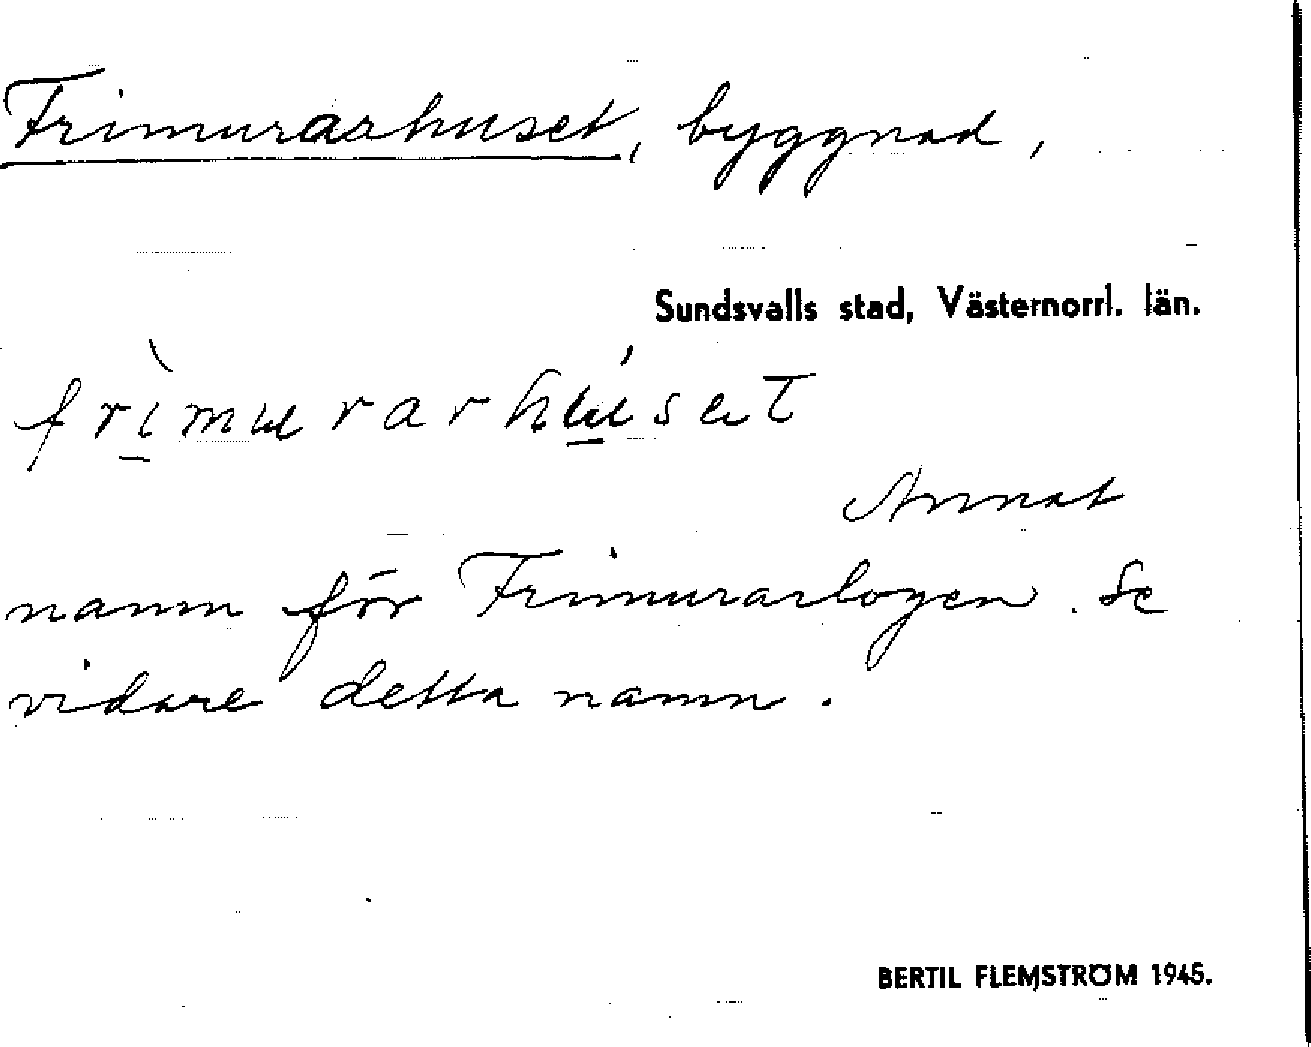 Frimurarhuset, byggnad,
Sundsvalls stad, Västernorrl. län.
frìmurarhúset
Annat
namn för Frimurarlogen. Se
vidare detta namn.
BERTIL FLEMSTRÖM 1945.